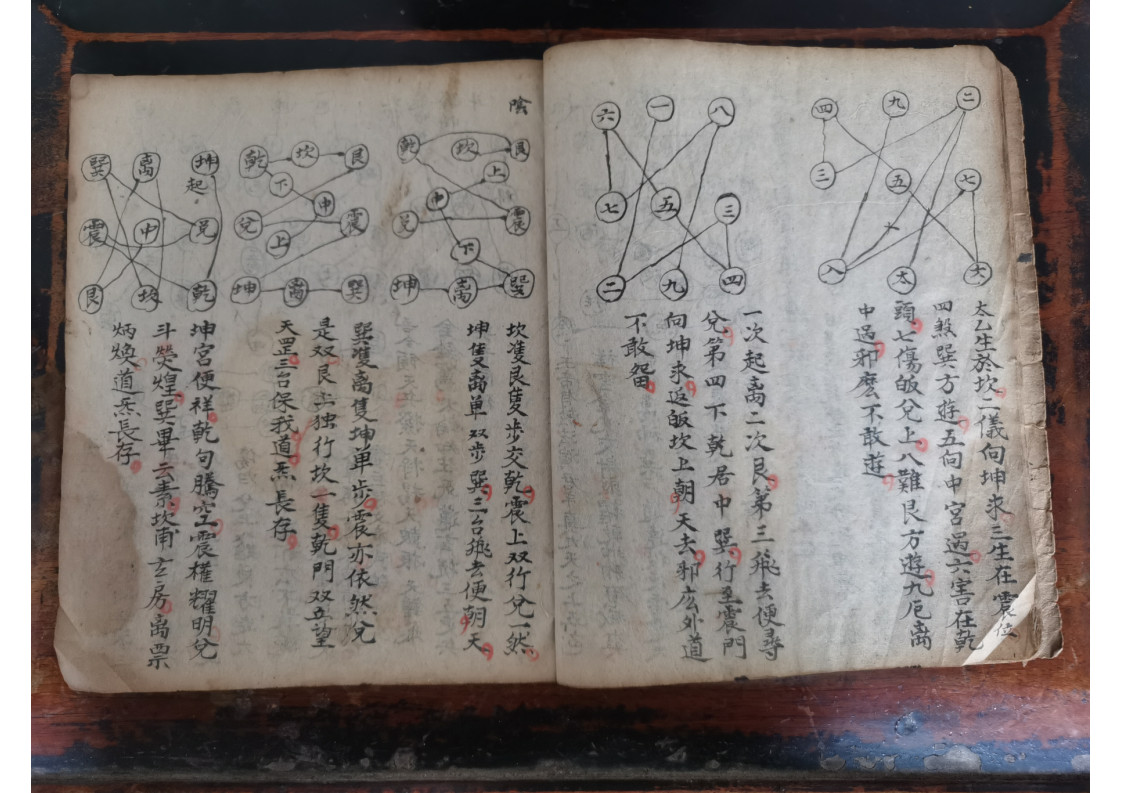 四 九 二
三 五 七
八 六
太乙生於坎二儀向坤求三生在震位
四煞巽方遊五向中宮過六害在乾
頭七傷皈兌上八難艮方遊九厄离
中過邪庅不敢遊
六 一 八
七 五 三
二 九 四
一次起离二次艮第三飛去便尋
兌第四下乾居中巽行至震門
向坤求返皈坎上朝天去邪庅外道
不敢畱
陰
乾 坎 艮
上
中
兌 震
下
坤 离 巽
坎隻艮隻步交乾震上双行兌一然
坤隻离单双步巽三台飛去便朝天
乾 坎 艮
下 中
兌 震
上
坤 离 巽
巽隻离隻坤单步震亦依然兌
是双艮步独行坎一隻乾門双五望
天罡三台保我道炁長存
巽 离 坤
起
震 中 兌
艮 坎 乾
坤宮便祥乾句騰空震權耀明兌
斗熒煌巽畢元素坎甫玄房离票
炳煥道炁長存